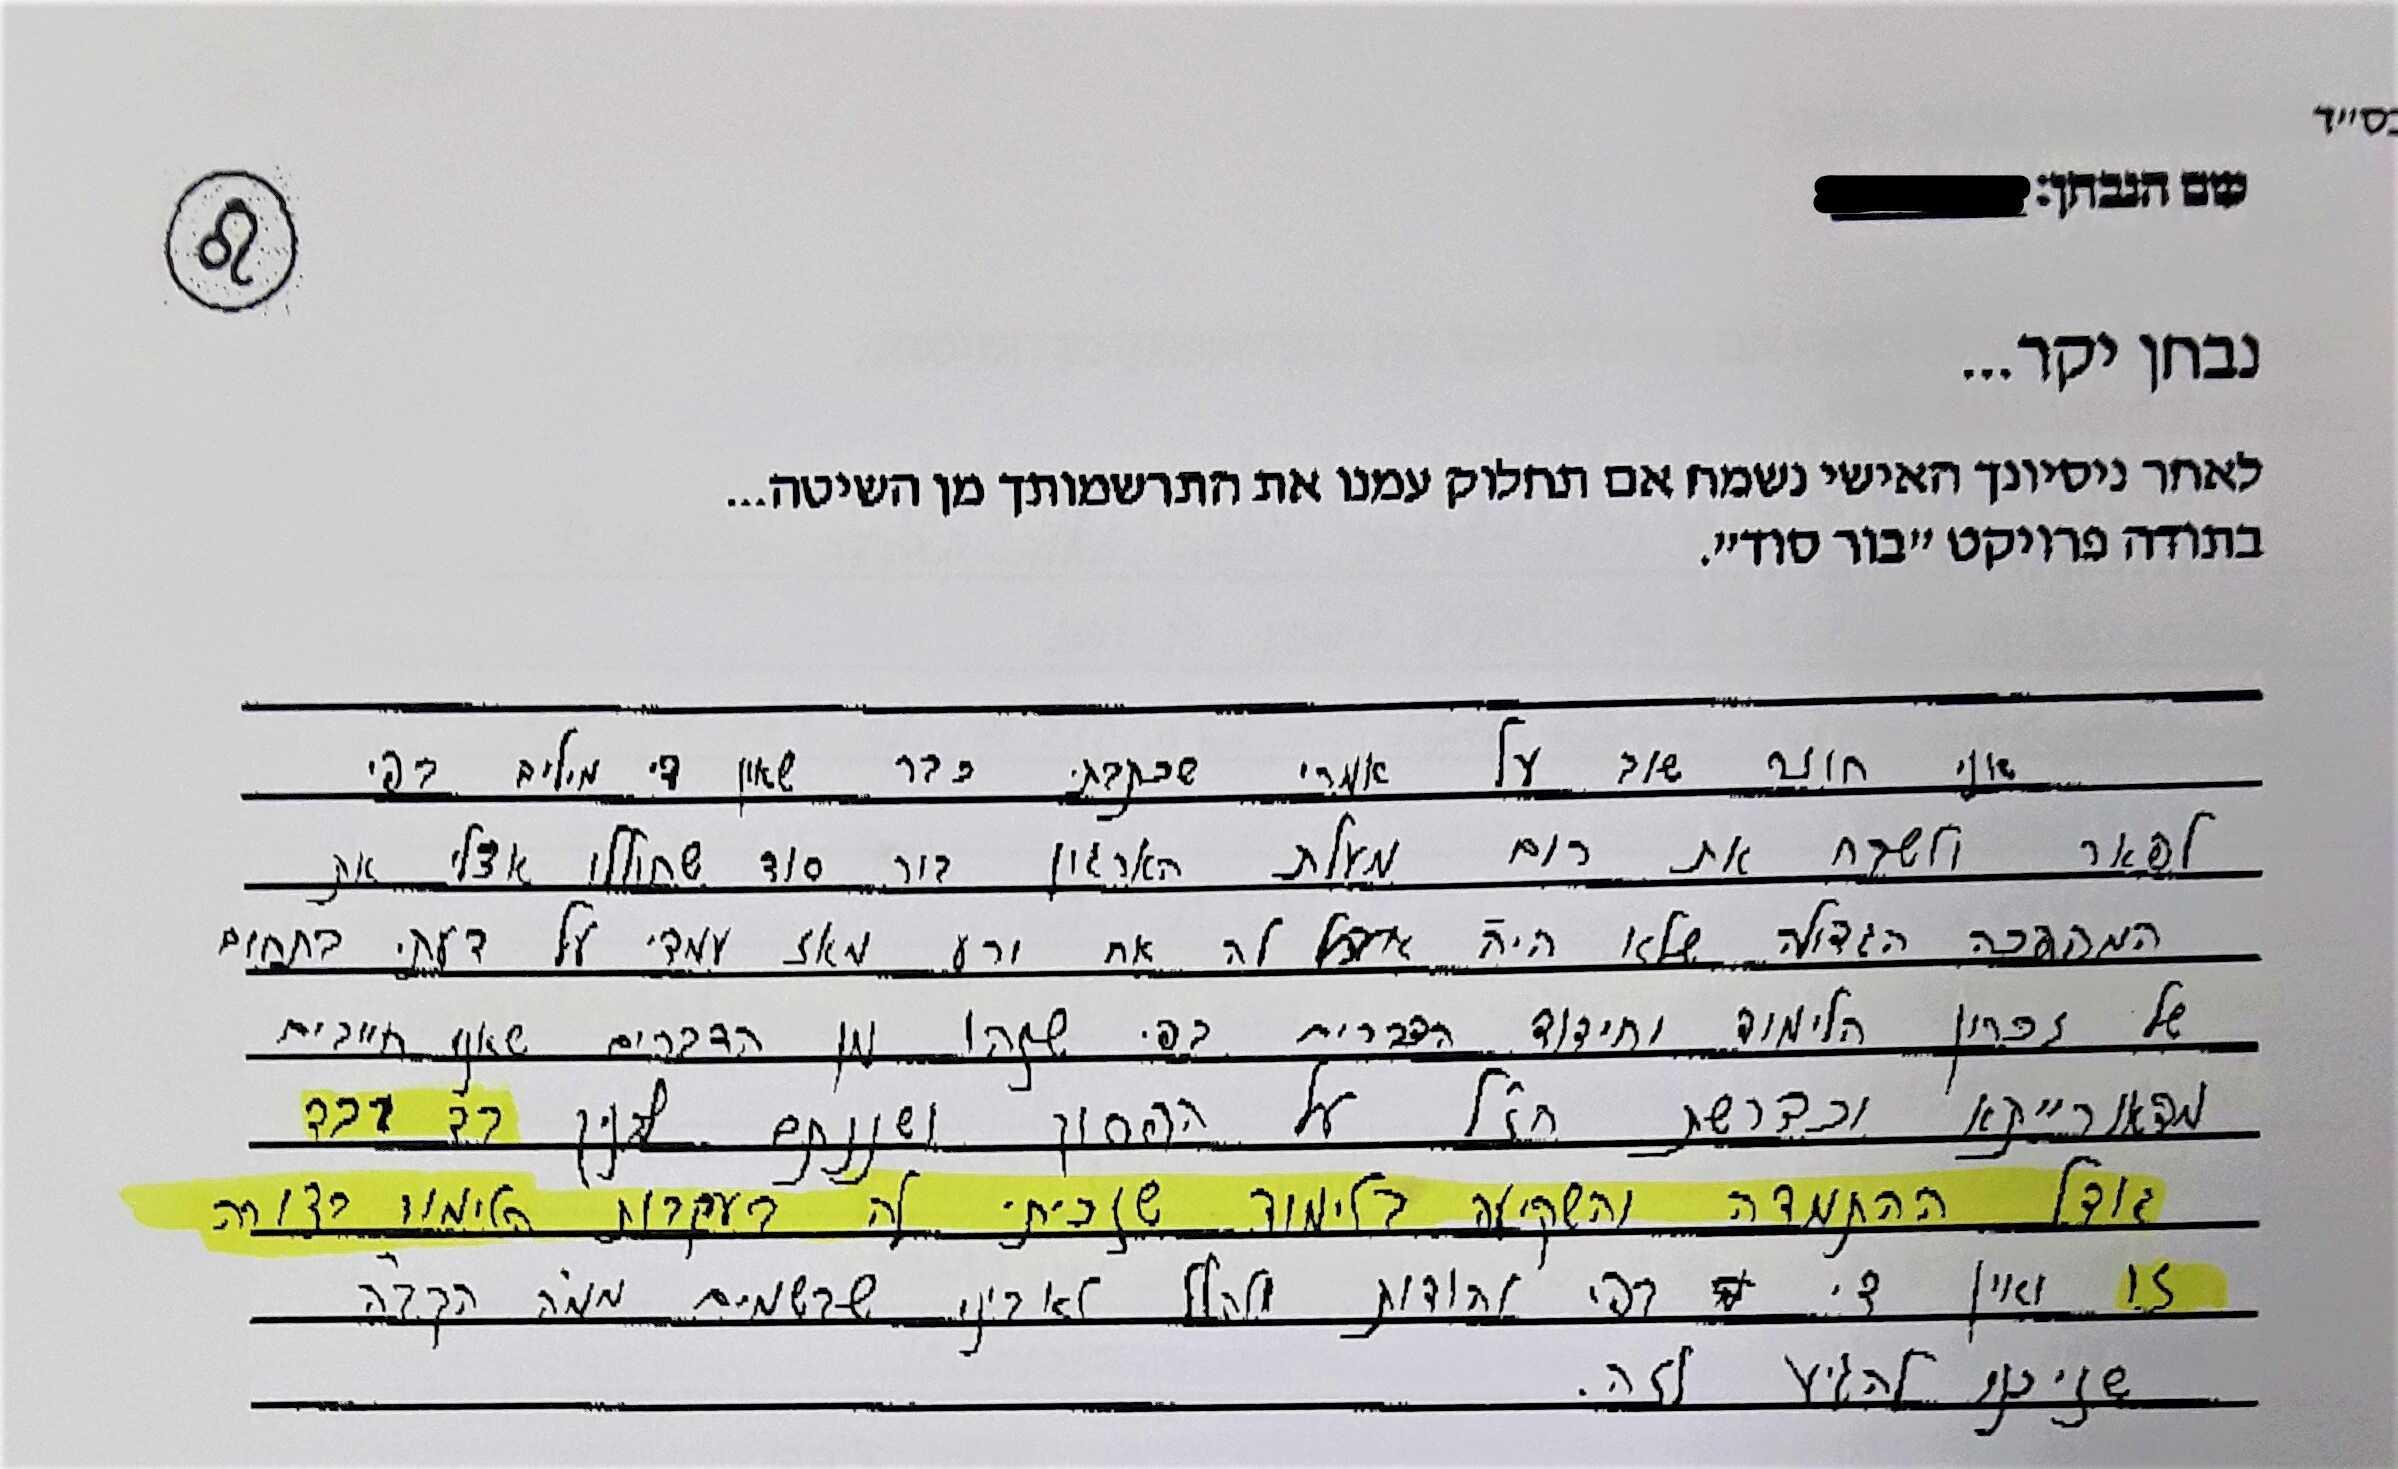 בס״ד
שם הנבחן:
נבחן יקר...
לאחר ניסיונך האישי נשמח אם תחלוק עמנו את התרשמותך מן השיטה...
בתודה פרויקט ״בור סוד״.
אני חוזר שוב על אמרי שכתבתי כבר שאין די מילים בפי
לפאר ולשבח את רום מעלת הארגון בור סוד שחוללו אצלי את
המהפכה הגדולה שלא היה לה אח ורע מאז עמדי על דעתי בתחום
של זכרון הלימוד וחידוד הדברים בפי שזהו מן הדברים שאנו חייבים
מדאורייתא וכדרשת חז״ל על הפסוק ושננתם לבניך
גודל ההתמדה והשקיעה בלימוד שזכיתי לה בעקבות הלימוד בצורה
זו ואין די בפי להודות ולהלל לאביני שבשמים ממה הקב״ה
שזיכני להגיע לזה.